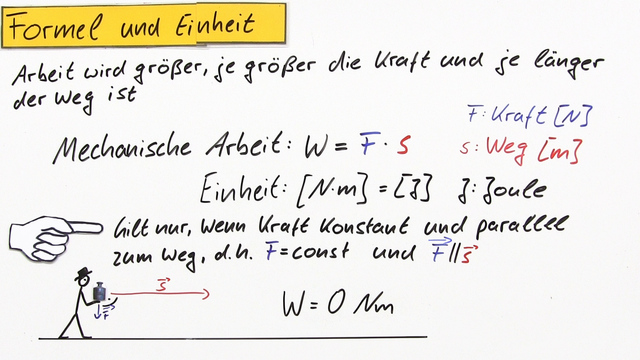 Formel und Einheit
Arbeit wird größer, je größer die Kraft und je länger
der Weg ist
F: Kraft [N]
Mechanische Arbeit: W = F · s
s: Weg [m]
Einheit: [N·m] = [J] J: Joule
Gilt nur, wenn Kraft konstant und parallel
zum Weg, d.h. F = const und F⃗ // s⃗
s⃗
F⃗
W = 0 Nm